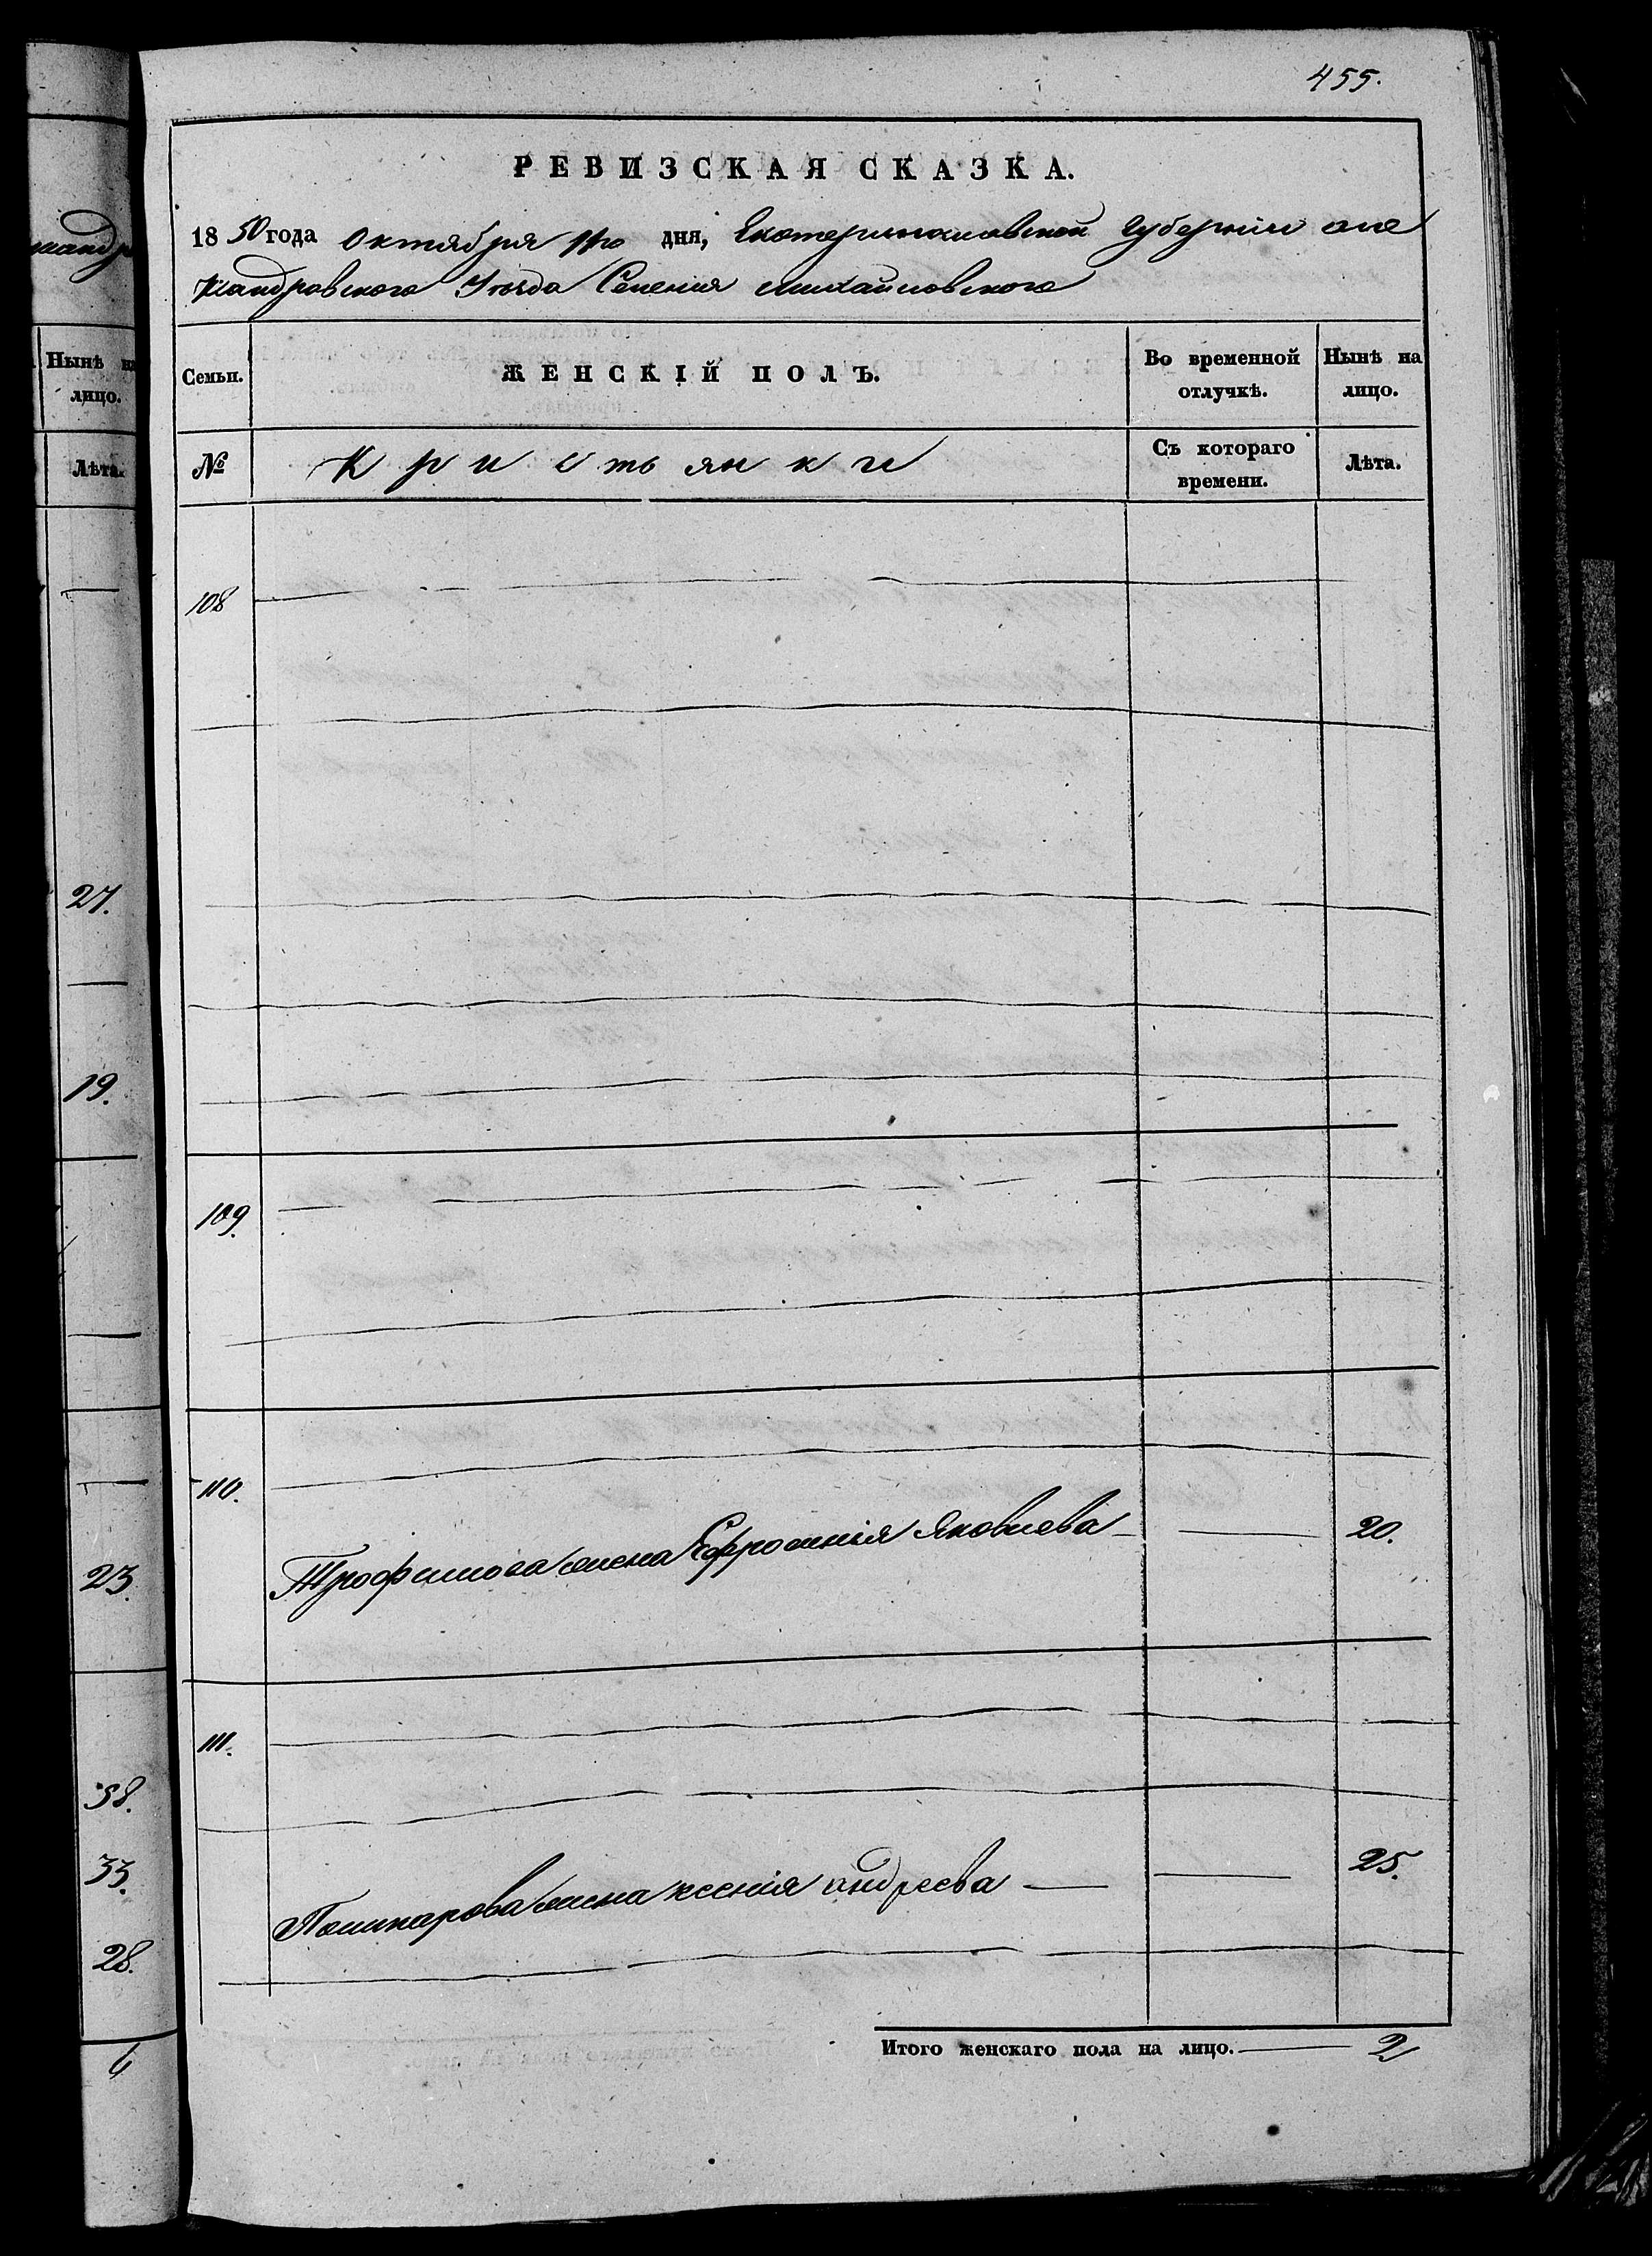 455.
РЕВИЗСКАЯ СКАЗКА.
1850 года Октября 11го дня, Екатеринославской Губернии Але
ксандровского Уезда Селения Михайловского
Семьи. ЖЕНСКІЙ ПОЛЪ. Во временной отлучкѣ. Нынѣ на лицо.
№ Кристьянки Съ котораго времени. Лѣта.
108
109.
110.
Трофимова жена Ефросинія Яковлева — — 20.
111.
Поликарова жена ксенія андреева — — 25.
Итого женскаго пола на лицо. — 2
Нынѣ на
лицо.
Лѣта.
27.
19.
23.
38.
33.
28.
6